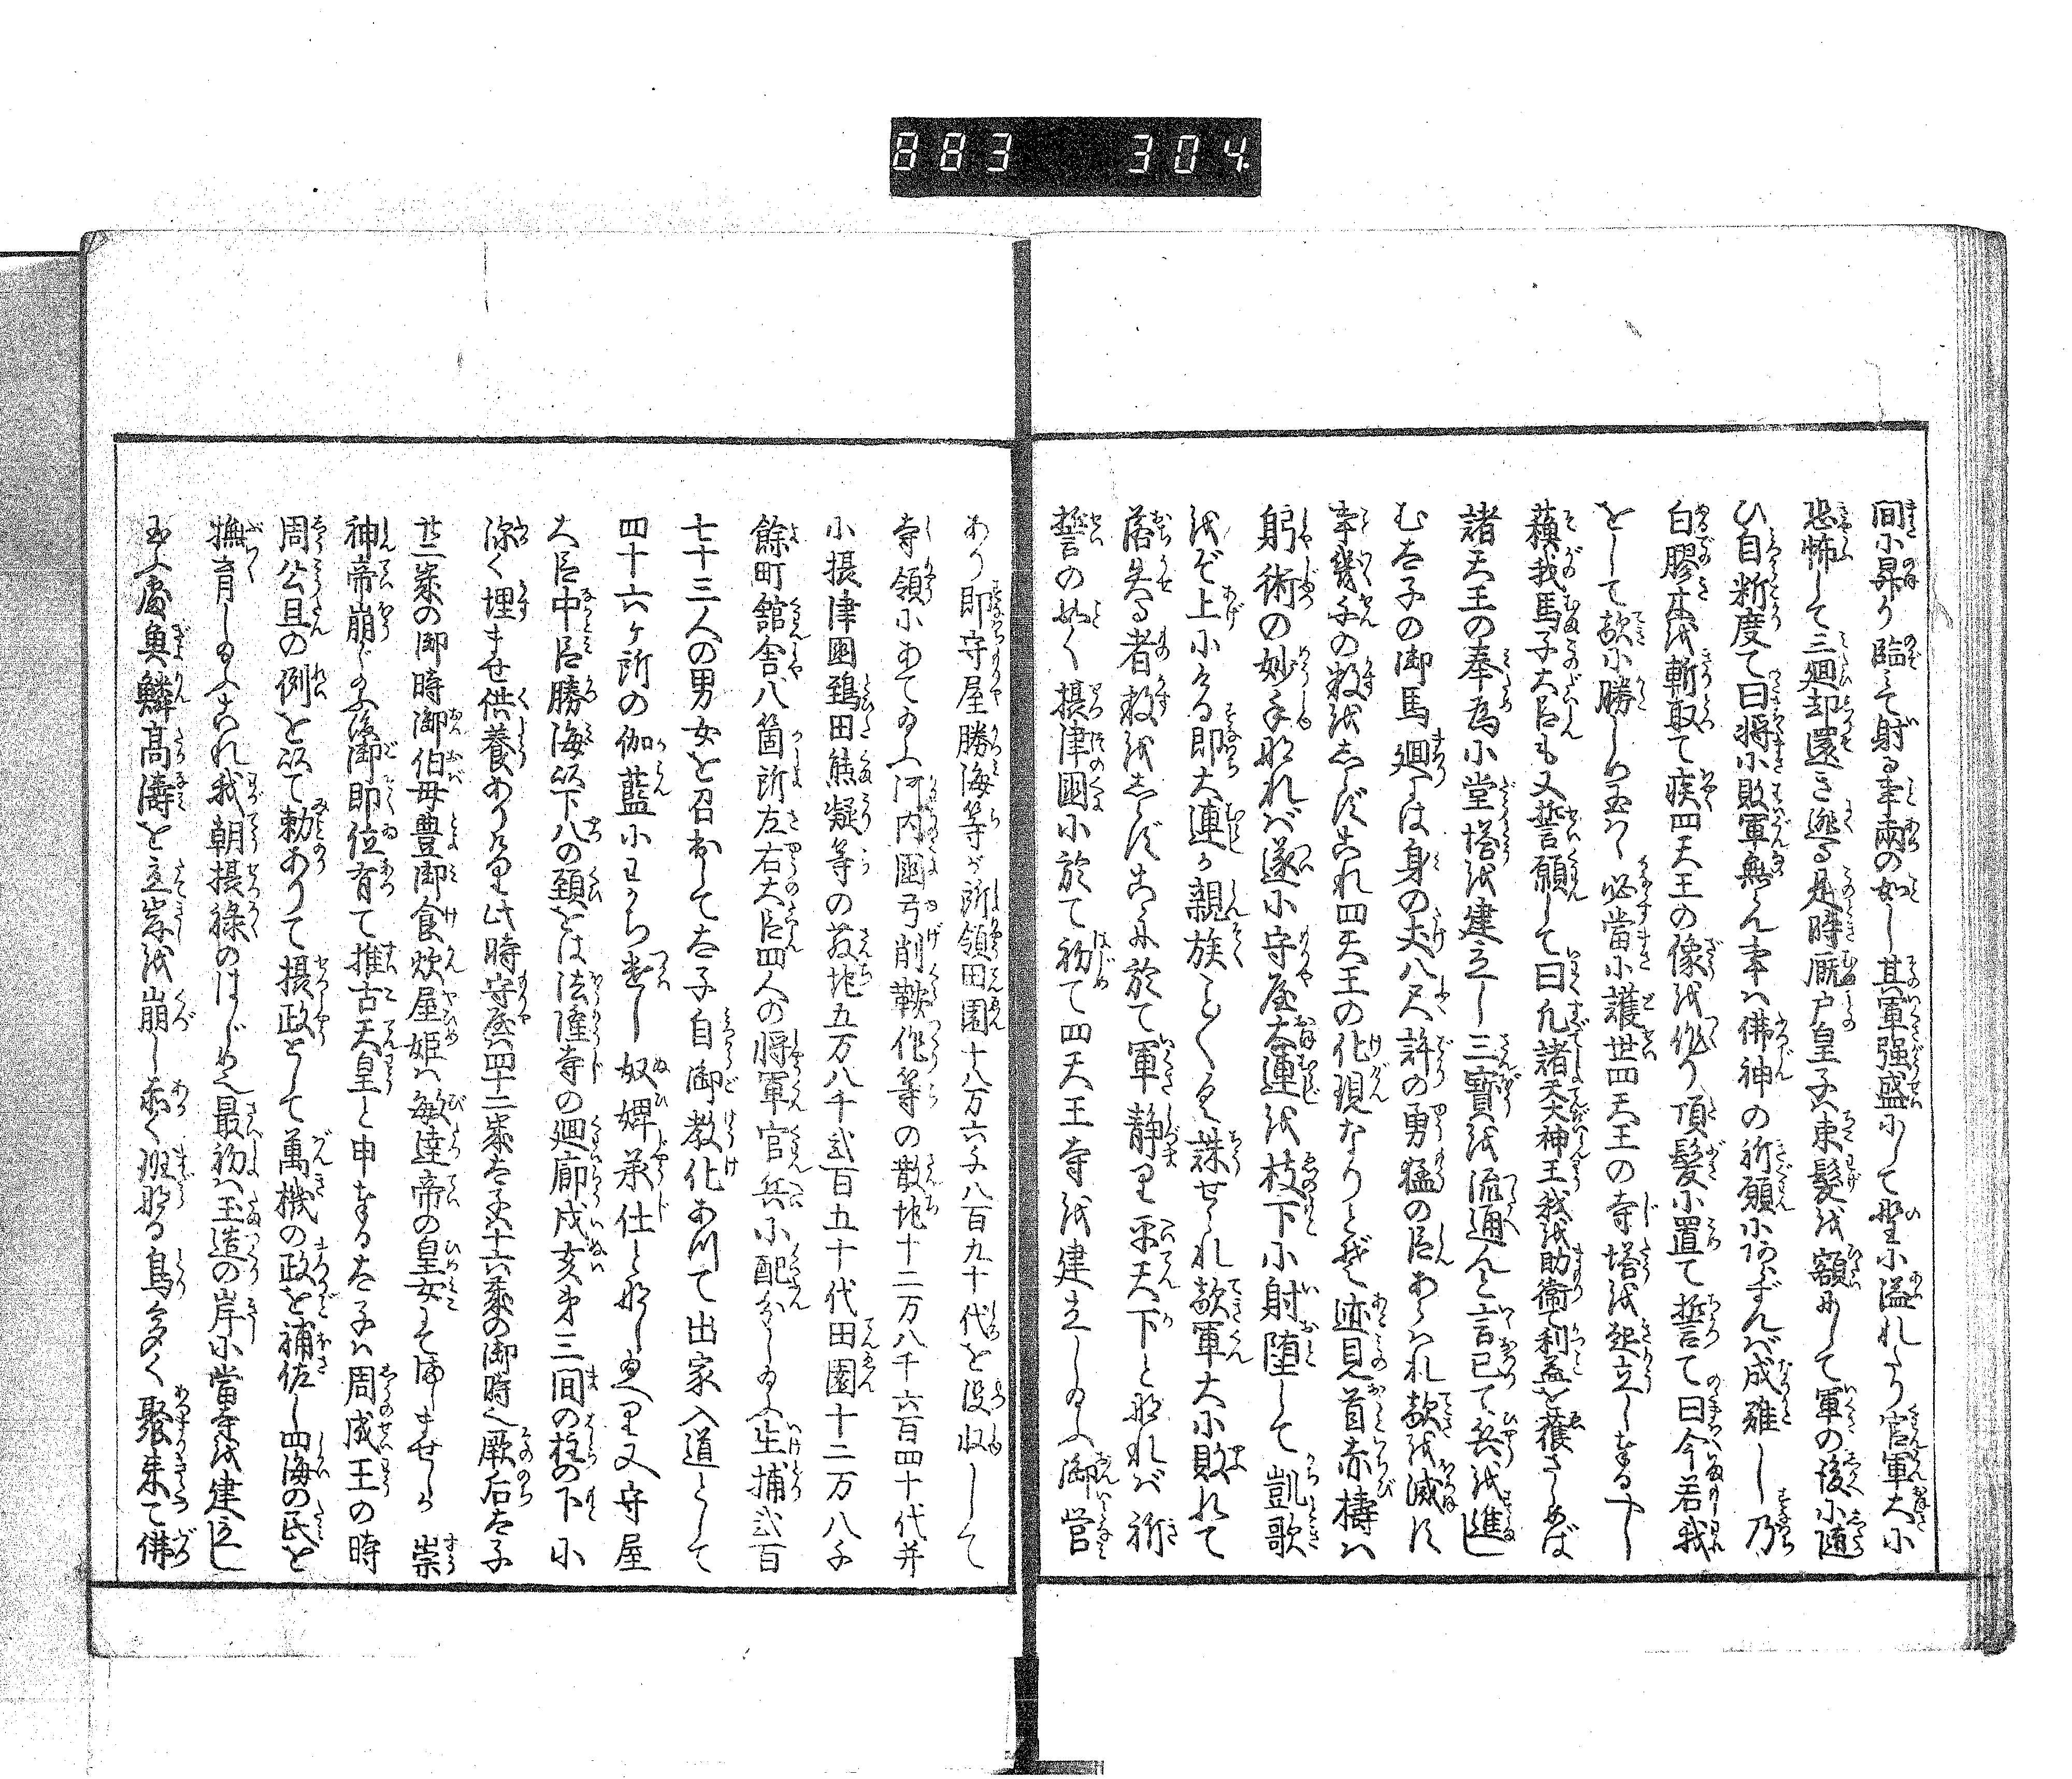 883 304
間に昇り臨て射る事雨の如し其軍强盛にして野に溢れたり官軍大に
恐怖して三廻却還き逃る是時厩戸皇子束髪を額にして軍の後に随
ひ自斷度て曰將に敗軍無らん事は佛神の祈願に非ずんば成難し乃
白膠木を斬取て疾四天王の像を作り頂髪に置て誓て曰今若我
をして敵に勝しめ玉はゞ必當に護世四天王の寺塔を起立し奉るべし
蘓我馬子大臣も又誓願して曰凡諸天大神王我を助衞て利益を獲さしめば
諸天王の奉為に堂塔を建立し三寶を流通んと言已て兵を進し
む太子の御馬廻には身の丈八尺許の勇猛の臣あらはれ敵を滅す
事幾千の数をしらずこれ四天王の化現なりとぞ迹見首赤檮は
躬術の妙手なれば遂に守屋大連を枝下に射堕して凱歌
をぞ上にける即大連が親族こと〴〵く誅せられ敵軍大に敗れて
落失る者数をしらずこゝに於て軍静り平天下と那れば祈
誓の如く摂津國に於て初て四天王寺を建立し給ふ御営
あり即守屋勝海等が所領田園十八万六千八百九十代を没収して
寺領にあて給ふ河内國弓削鞍作等の散地十二万八千六百四十代并
に摂津國鵄田熊凝等の散地五万八千弐百五十代田園十二万八千
餘町舘舎八箇所左右大臣四人の將軍官兵に配分し給ふ生捕弐百
七十三人の男女を召出して太子自御教化あつて出家入道として
四十六ヶ所の伽藍にわかち遣し奴婢承仕と那し給へり又守屋
大臣中臣勝海以下八の頚をは法隆寺の廻廊戌亥第三間の柱の下に
深く埋ませ供養ありけり此時守屋は四十二歳太子は十六歳の御時也厥后太子
廿二歳の御時御伯母豊御食炊屋姫は敏達帝の皇女にておはしませしが崇
神帝崩じ給ふ後御即位有て推古天皇と申奉る太子は周成王の時
周公旦の例を以て勅ありて摂政として萬機の政を補佐し四海の民を
撫育し給ふこれ我朝摂祿のはじめ也最初は玉造の岸に當寺を建立し
玉ふ處魚鱗髙濤を立岸を崩し赤く班那る鳥多く聚来て佛